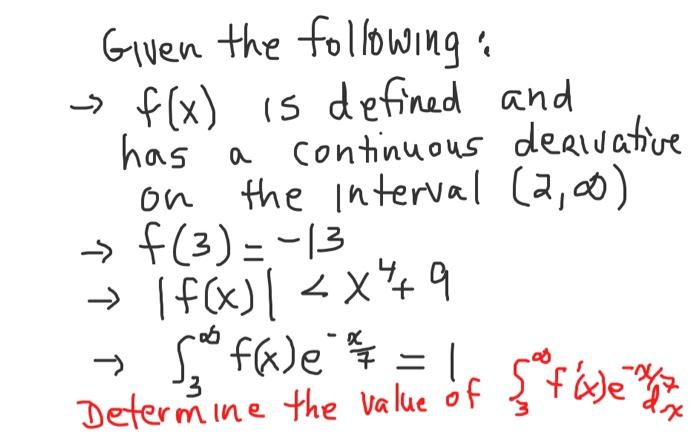 Given the following:
→ f(x) is defined and
has a continuous derivative
on the interval (2,∞)
→ f(3) = -13
→ |f(x)| < x⁴+ 9
→ ∫₃^∞ f(x)e^(-x/7) = 1
Determine the value of ∫₃^∞ f'(x)e^(-x/7) dx